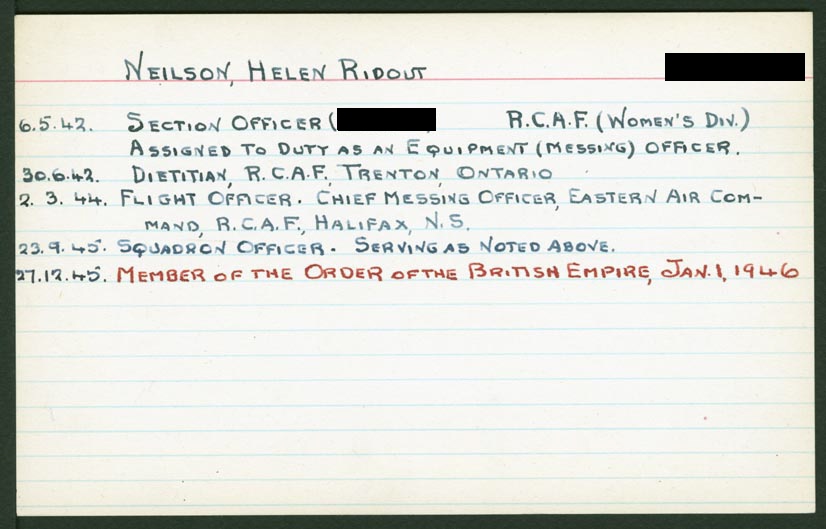 NEILSON, HELEN RIDOUT
6.5.42. SECTION OFFICER ( ) R.C.A.F. (WOMEN'S DIV.)
ASSIGNED TO DUTY AS AN EQUIPMENT (MESSING) OFFICER.
30.6.42. DIETITIAN, R.C.A.F. TRENTON, ONTARIO
2. 3. 44. FLIGHT OFFICER. CHIEF MESSING OFFICER, EASTERN AIR COM-
MAND, R.C.A.F., HALIFAX, N.S.
23.9.45. SQUADRON OFFICER. SERVING AS NOTED ABOVE.
27.12.45. MEMBER OF THE ORDER OF THE BRITISH EMPIRE, JAN. 1, 1946